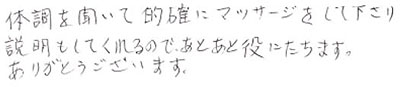 体調を聞いて的確にマッサージをして下さり
説明もしてくれるので、あとあと役にたちます。
ありがとうございます。